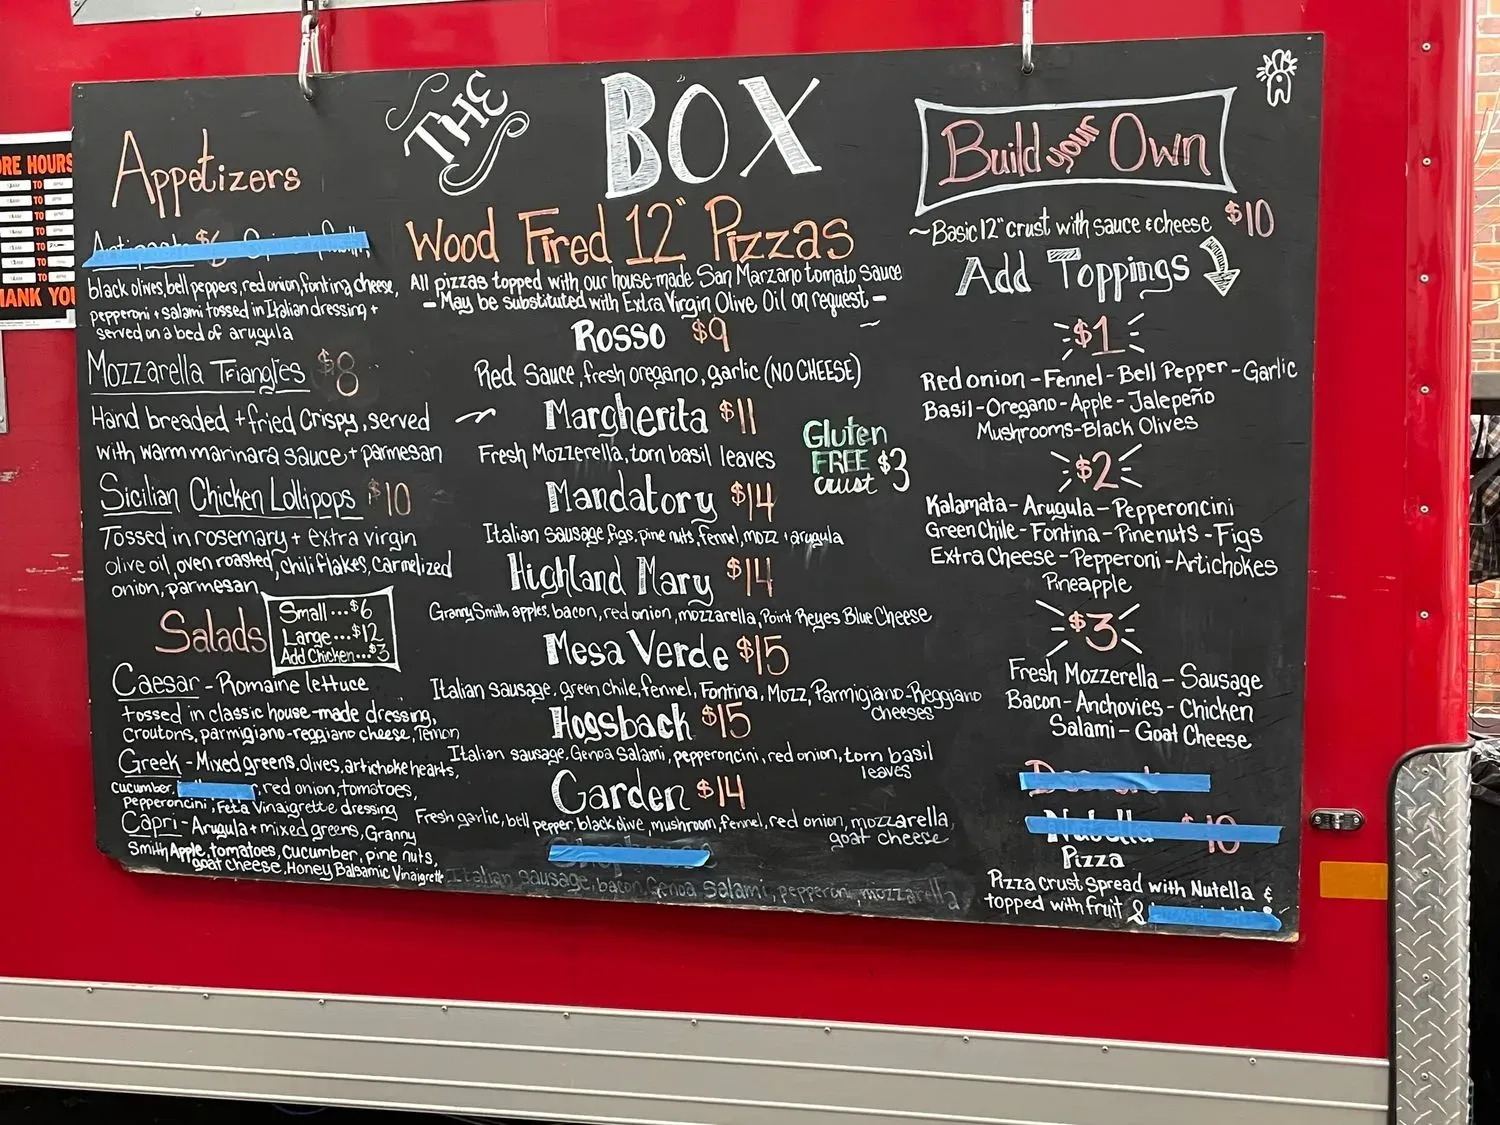 THE BOX
Appetizers
$6
black olives, bell peppers, red onion, fontina cheese,
pepperoni + salami tossed in Italian dressing +
served on a bed of arugula
Mozzarella Triangles $8
Hand breaded + fried crispy, served
with warm marinara sauce + parmesan
Sicilian Chicken Lollipops $10
Tossed in rosemary + extra virgin
olive oil, oven roasted, chili flakes, carmelized
onion, parmesan
Salads
Small...$6
Large...$12
Add Chicken...$3
Caesar - Romaine lettuce
tossed in classic house-made dressing,
croutons, parmigiano-reggiano cheese, lemon
Greek - Mixed greens, olives, artichoke hearts,
cucumber, , red onion, tomatoes,
Pepperoncini, Feta Vinaigrette dressing
Capri - Arugula + mixed greens, Granny
Smith Apple, tomatoes, cucumber, pine nuts,
goat cheese, Honey Balsamic Vinaigrette
Wood Fired 12" Pizzas
All pizzas topped with our house-made San Marzano tomato sauce
- May be substituted with Extra Virgin Olive Oil on request -
Rosso $9
Red Sauce, fresh oregano, garlic (NO CHEESE)
Margherita $11
Fresh Mozzerella, torn basil leaves
Gluten
FREE $3
crust
Mandatory $14
Italian sausage, figs, pine nuts, fennel, mozz + arugula
Highland Mary $14
Granny Smith apples, bacon, red onion, mozzarella, Point Reyes Blue Cheese
Mesa Verde $15
Italian sausage, green chile, fennel, Fontina, Mozz, Parmigiano-Reggiano
cheeses
Hogsback $15
Italian sausage, Genoa Salami, pepperoncini, red onion, torn basil
leaves
Garden $14
Fresh garlic, bell pepper, black olive, mushroom, fennel, red onion, mozzarella,
goat cheese
Italian sausage, bacon, Genoa Salami, pepperoni, mozzarella
Build your Own
~Basic 12" crust with sauce & cheese $10
Add Toppings
$1
Red onion - Fennel - Bell Pepper - Garlic
Basil - Oregano - Apple - Jalepeño
Mushrooms - Black Olives
$2
Kalamata - Arugula - Pepperoncini
Green Chile - Fontina - Pinenuts - Figs
Extra Cheese - Pepperoni - Artichokes
Pineapple
$3
Fresh Mozzerella - Sausage
Bacon - Anchovies - Chicken
Salami - Goat Cheese
Nutella $10
Pizza
Pizza crust spread with Nutella &
topped with fruit &
ORE HOURS
TO
TO
TO
TO
TO
TO
TO
HANK YOU